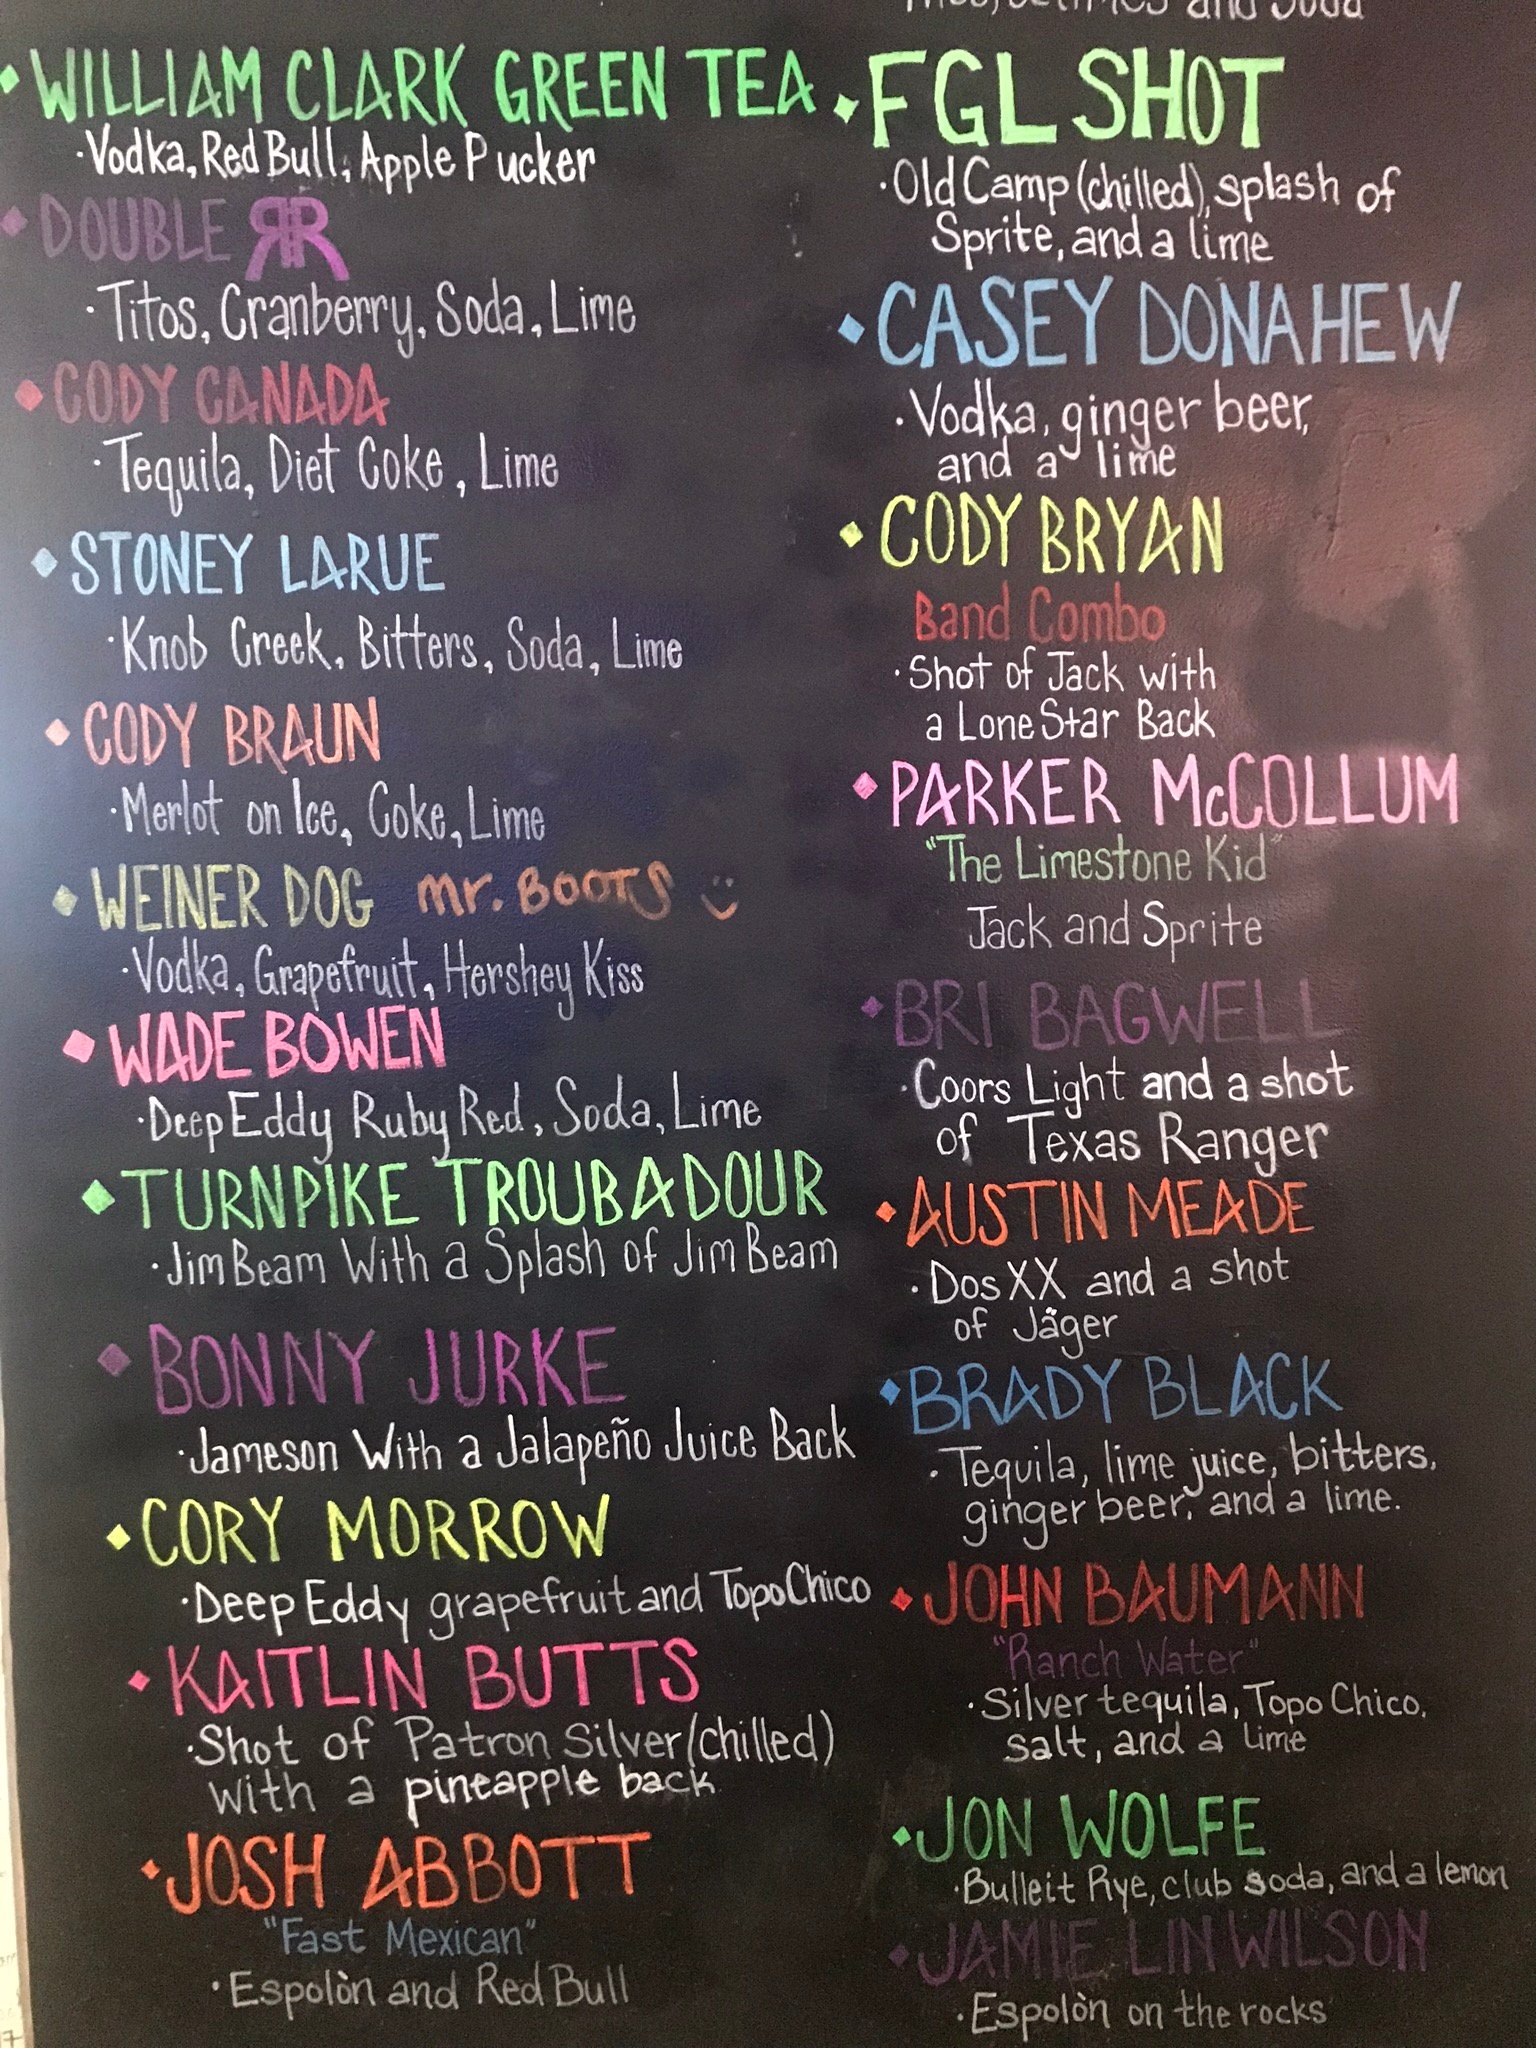 WILLIAM CLARK GREEN TEA
·Vodka, Red Bull, Apple Pucker
DOUBLE RR
·Titos, Cranberry, Soda, Lime
CODY CANADA
·Tequila, Diet Coke, Lime
STONEY LARUE
·Knob Creek, Bitters, Soda, Lime
CODY BRAUN
·Merlot on Ice, Coke, Lime
WEINER DOG mr. BOOTS
·Vodka, Grapefruit, Hershey Kiss
WADE BOWEN
·Deep Eddy Ruby Red, Soda, Lime
TURNPIKE TROUBADOUR
·Jim Beam With a Splash of Jim Beam
BONNY JURKE
·Jameson With a Jalapeño Juice Back
CORY MORROW
·Deep Eddy grapefruit and Topo Chico
KAITLIN BUTTS
·Shot of Patron Silver (chilled)
with a pineapple back
JOSH ABBOTT
"Fast Mexican"
·Espolòn and Red Bull
and Soda
FGL SHOT
·Old Camp (chilled), splash of
Sprite, and a lime
CASEY DONAHEW
·Vodka, ginger beer,
and a lime
CODY BRYAN
Band Combo
·Shot of Jack with
a Lone Star Back
PARKER McCOLLUM
"The Limestone Kid"
Jack and Sprite
BRI BAGWELL
·Coors Light and a shot
of Texas Ranger
AUSTIN MEADE
·Dos XX and a shot
of Jäger
BRADY BLACK
·Tequila, lime juice, bitters,
ginger beer, and a lime.
JOHN BAUMANN
"Ranch Water"
·Silver tequila, Topo Chico,
salt, and a lime
JON WOLFE
·Bulleit Rye, club soda, and a lemon
JAMIE LIN WILSON
·Espolòn on the rocks